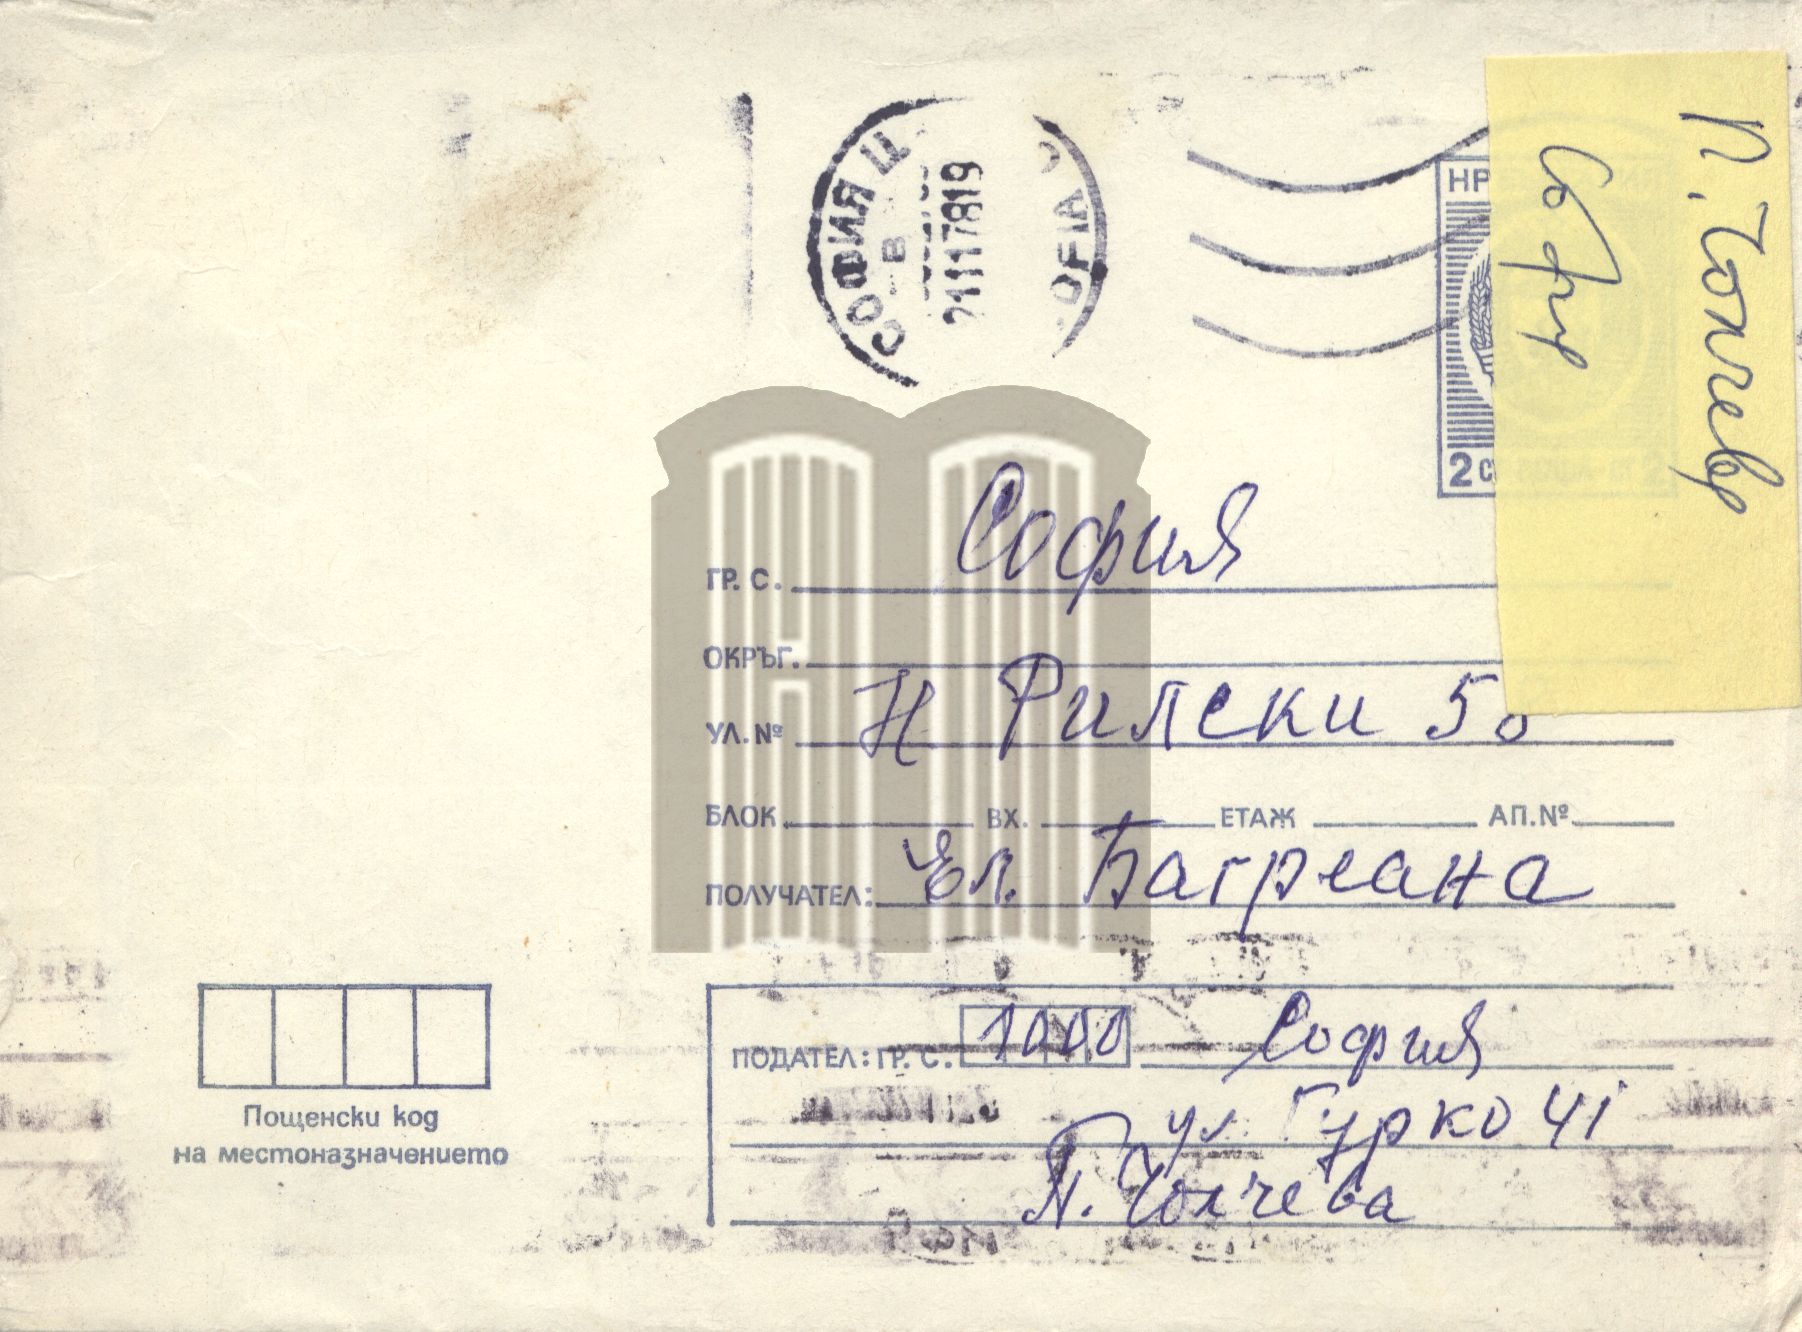 СОФИЯ Ц
В
21117819
SOFIA
НР
2 С
П. Чолчева
София
ГР. С. София
ОКРЪГ.
УЛ. № И Рилски 50
БЛОК ВХ. ЕТАЖ АП. №
ПОЛУЧАТЕЛ: Ел. Багреана
Пощенски код
на местоназначението
ПОДАТЕЛ: ГР. С. 1000 София
ул. Гурко 41
П. Чолчева